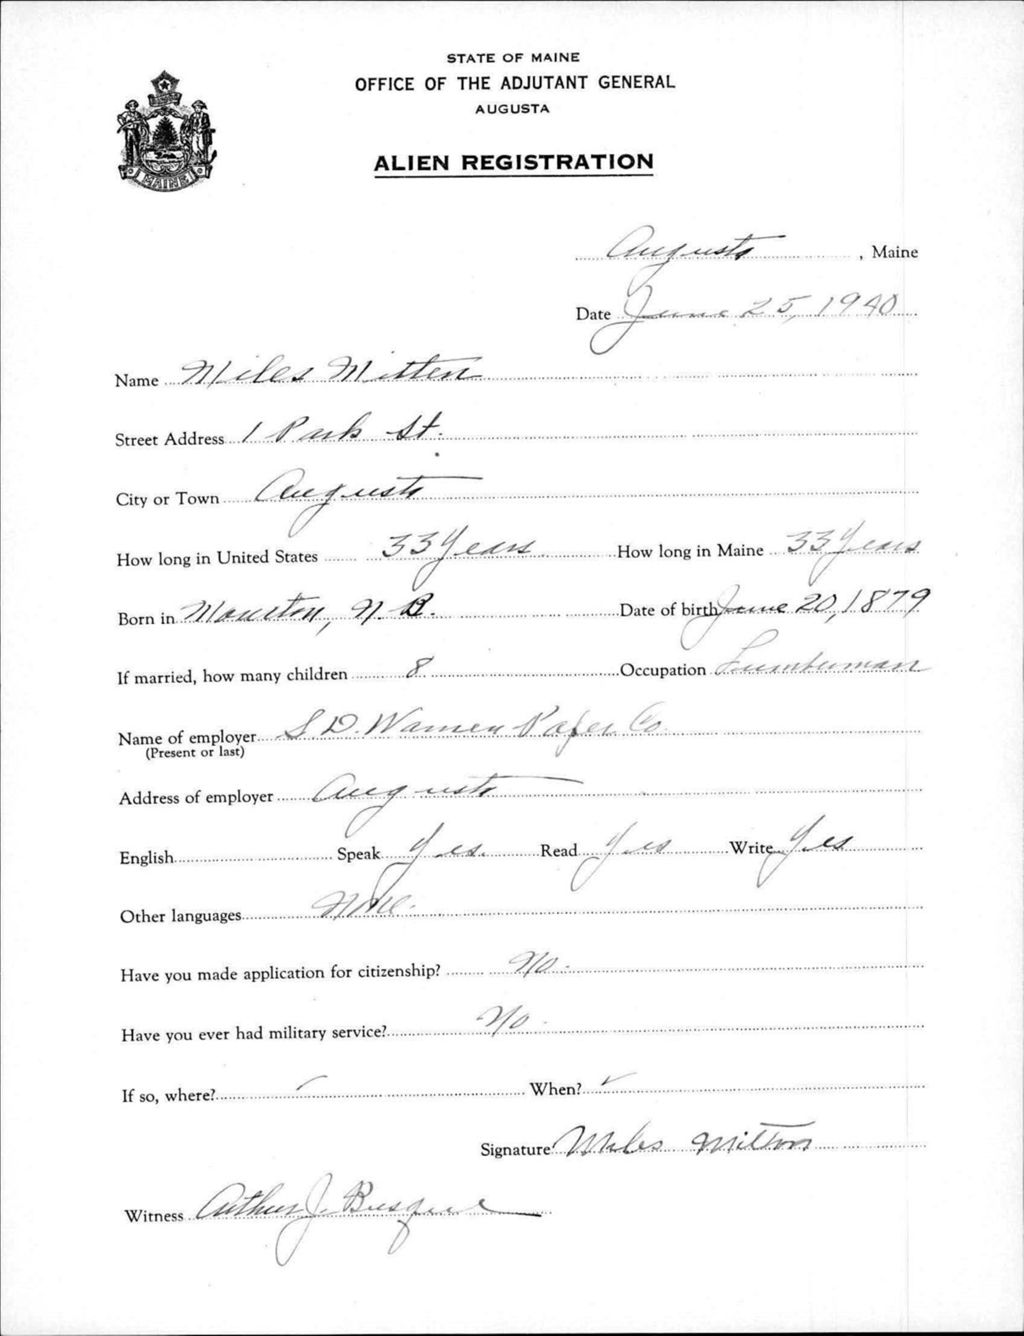 STATE OF MAINE
OFFICE OF THE ADJUTANT GENERAL
AUGUSTA
MAINE
ALIEN REGISTRATION
Augusta, Maine
Date June 25, 1940
Name Miles Mitten
Street Address 1 Park St.
City or Town Augusta
How long in United States 33 Years How long in Maine 33 Years
Born in N. B. Date of birth June 20, 1879
If married, how many children 8 Occupation Lumberman
Name of employer S D. Warren Paper Co.
(Present or last)
Address of employer Augusta
English Speak Yes. Read Yes Write Yes
Other languages None.
Have you made application for citizenship? No.
Have you ever had military service? No.
If so, where? When?
Signature Miles Mitton
Witness Arthur J.